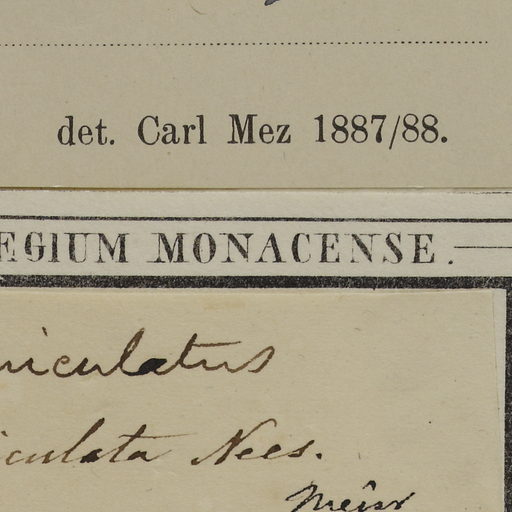 det. Carl Mez 1887/88.
EGIUM MONACENSE.
niculatus
iculata Nees.
Meisn